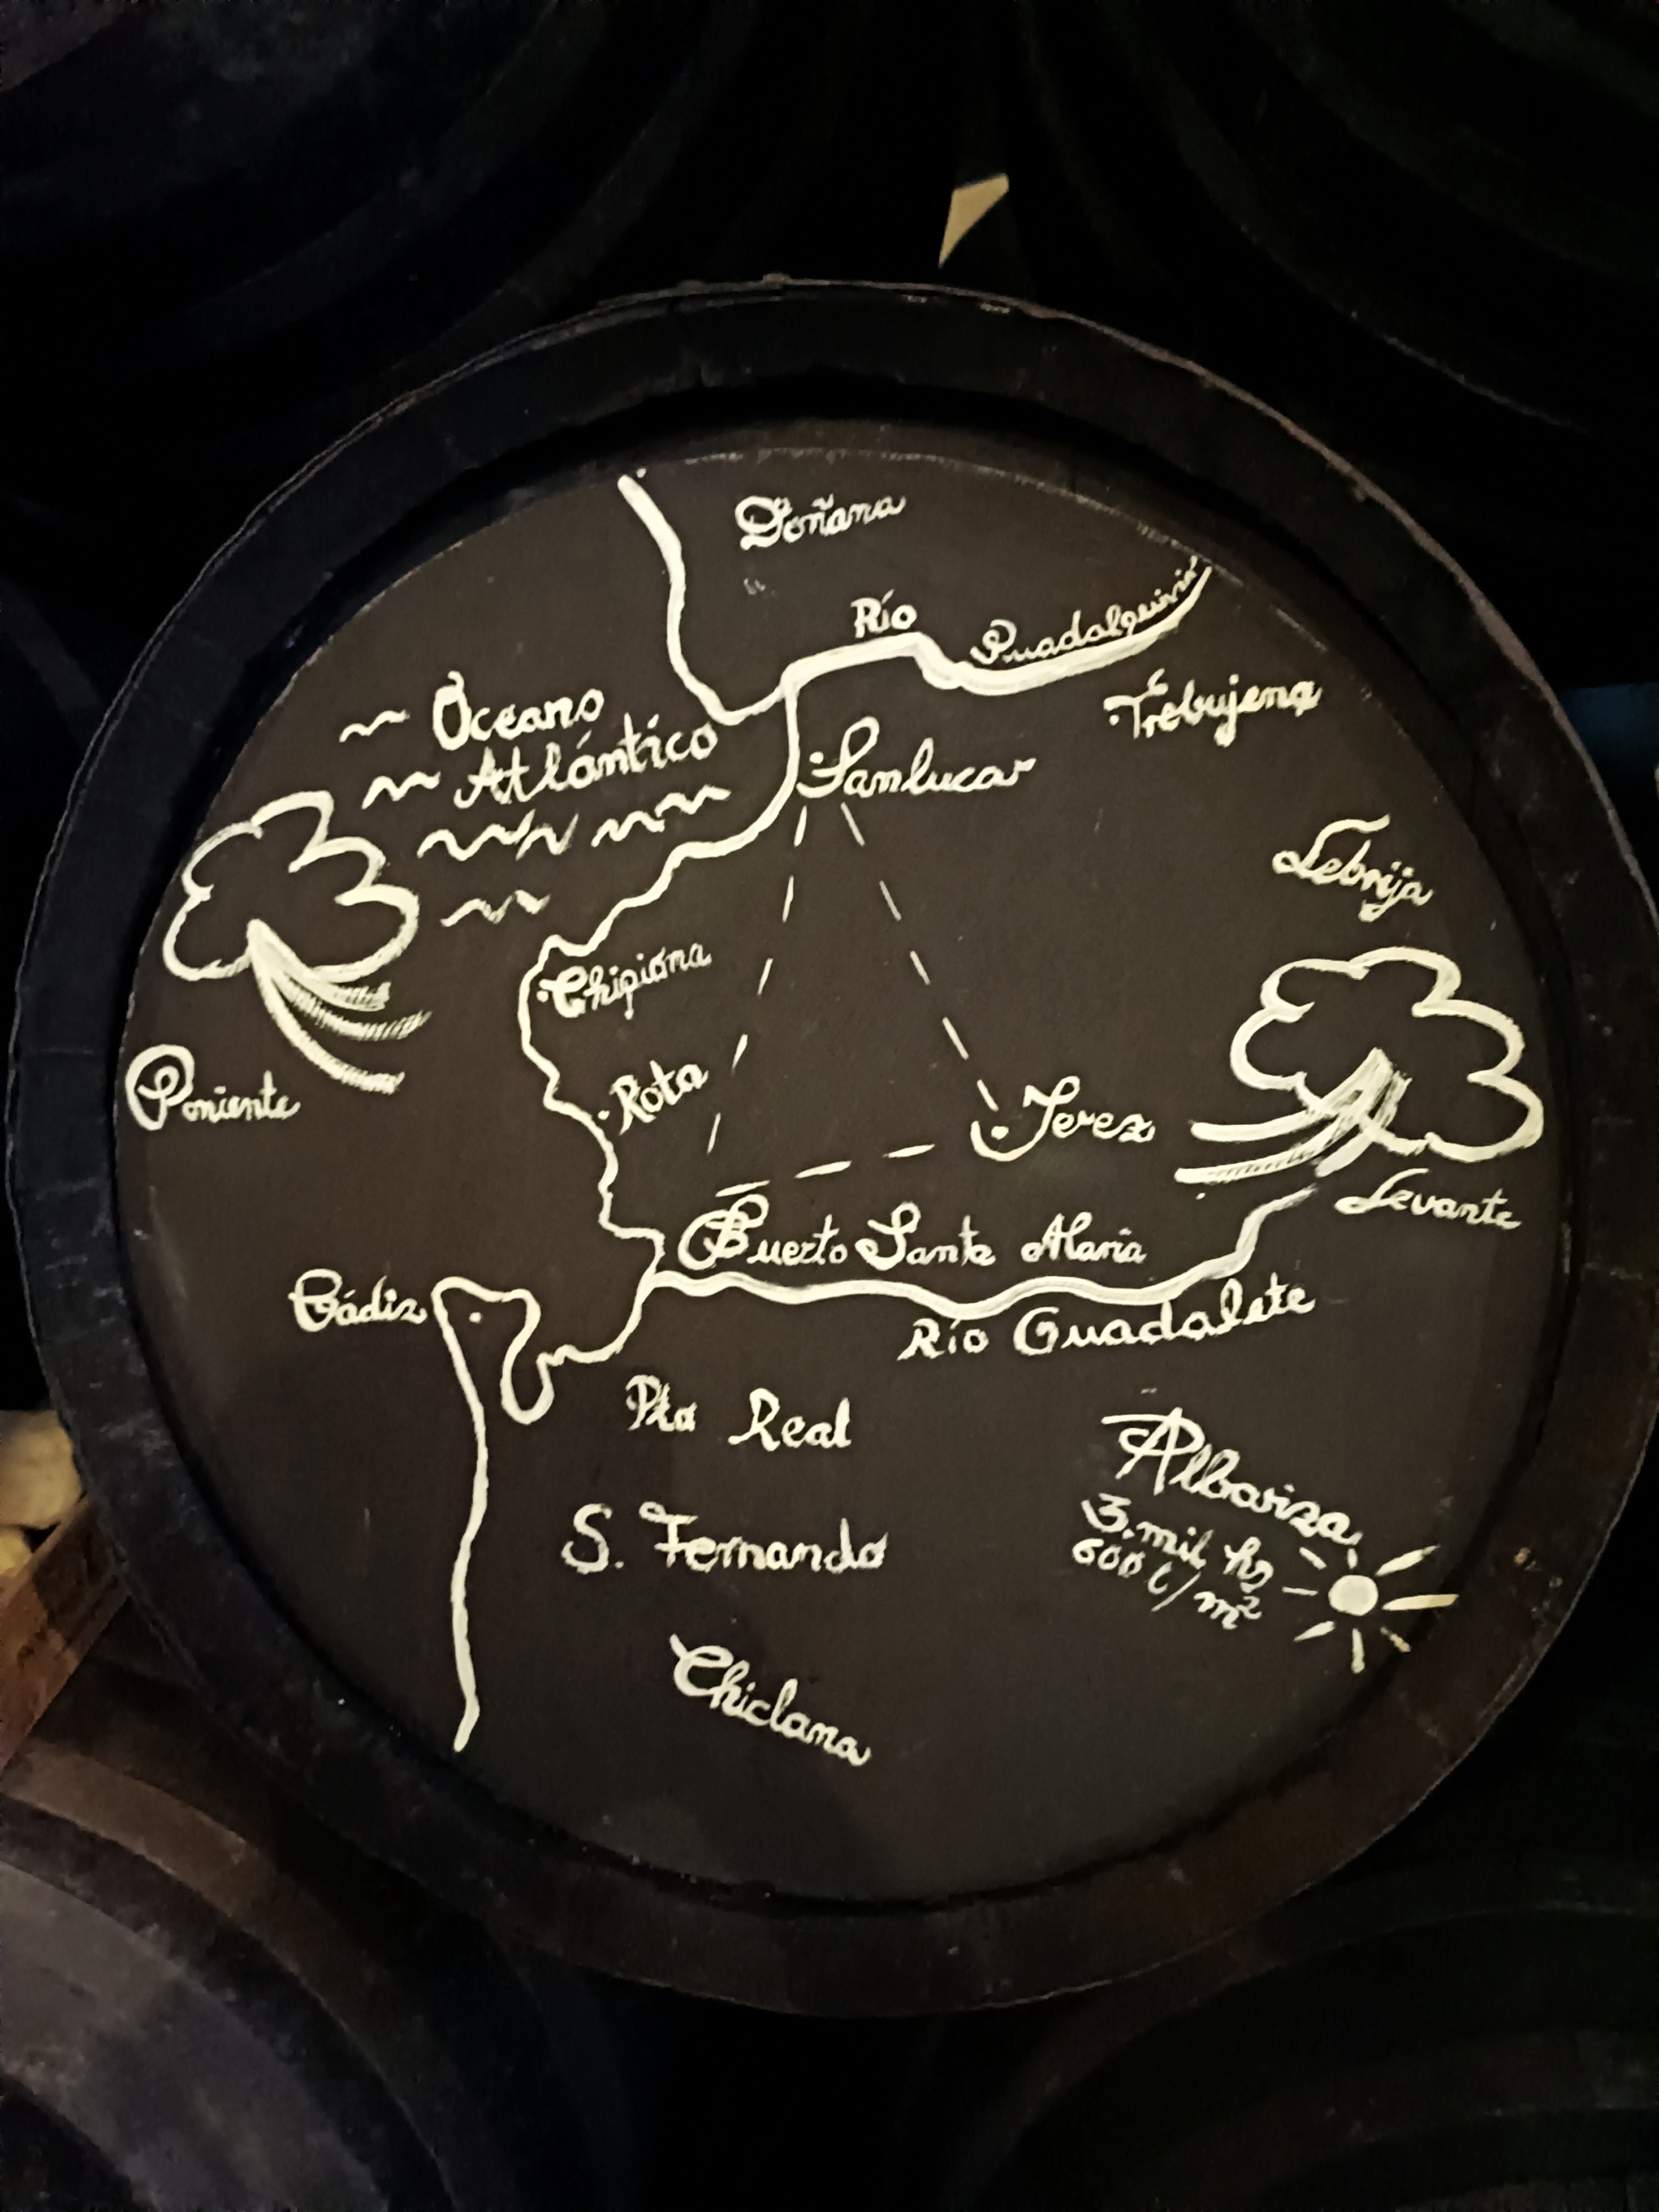 Doñana
Río Guadalquivir
Trebujena
Oceano
Atlántico
Sanlucar
Lebrija
Chipiona
Rota
Jerez
Poniente
Levante
Puerto Santa María
Cádiz
Río Guadalete
Pto Real
Albariza
3.mil hs
600 l/m²
S. Fernando
Chiclana